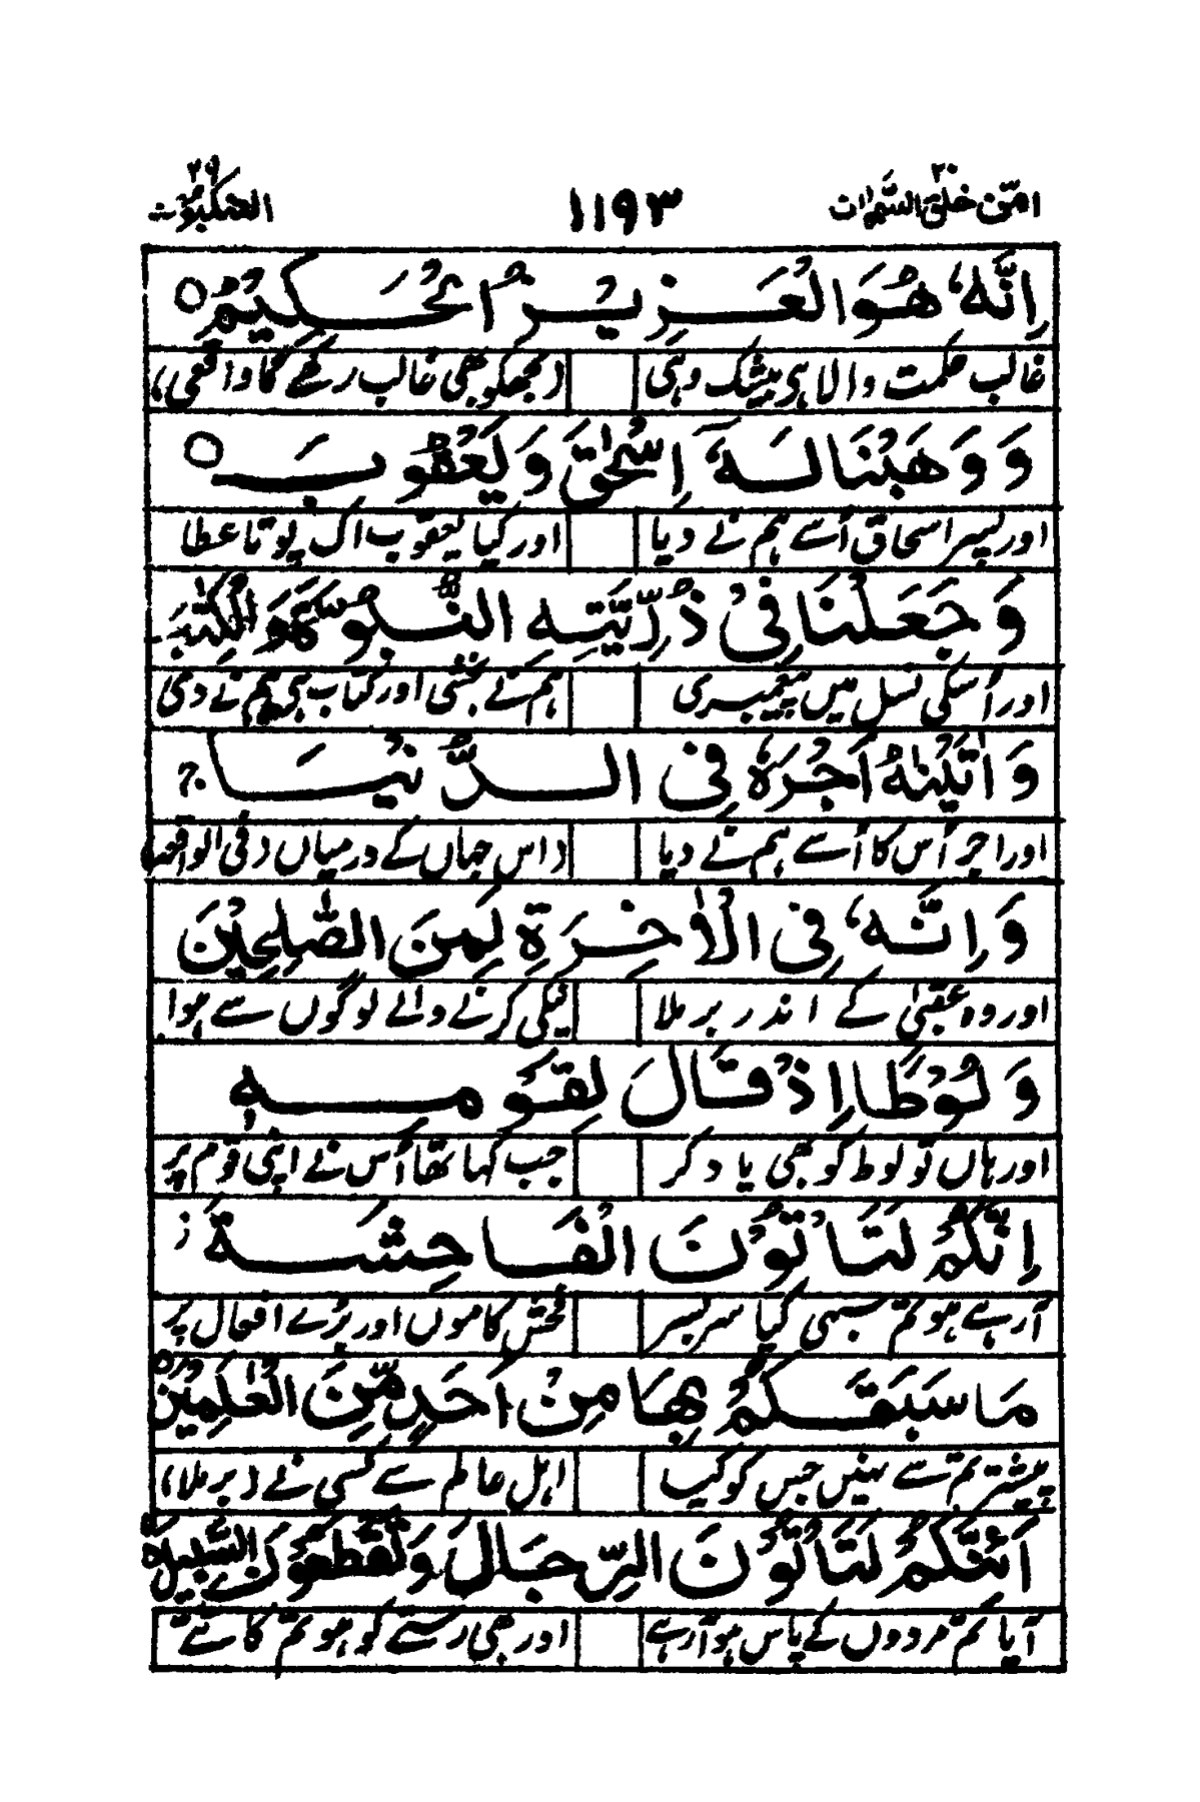 امّن خلق السّمٰوات ٢٠ ١١٩٣ العنکبوت ٢٩
اِنَّهٗ هُوَ الْعَزِیْزُ الْحَکِیْمُ ○
غالب حکمت والا ہی بیشک وہی (مجھکو بھی غالب رکھے گا واقعی)
وَ وَهَبْنَا لَهٗۤ اِسْحٰقَ وَ یَعْقُوْبَ ○
اور پسر اسحاق اُسے ہم نے دیا اور کیا یعقوب اک پوتا عطا
وَ جَعَلْنَا فِیْ ذُرِّیَّتِهِ النُّبُوَّةَ وَ الْکِتٰبَ
اور اُسکی نسل میں پیغمبری ہم نے بخشی اور کتاب بھی ہم نے دی
وَ اٰتَیْنٰهُ اَجْرَهٗ فِی الدُّنْیَا ج
اور اجر اُس کا اُسے ہم نے دیا (اس جہاں کے درمیاں فی الواقعہ)
وَ اِنَّهٗ فِی الْاٰخِرَةِ لَمِنَ الصّٰلِحِیْنَ
اور وہ عقبیٰ کے اندر برملا نیکی کرنے والے لوگوں سے ہوا
وَ لُوْطًا اِذْ قَالَ لِقَوْمِهٖ
اور ہاں تو لوط کو بھی یاد کر جب کہا تھا اُس نے اپنی قوم پر
اِنَّکُمْ لَتَاْتُوْنَ الْفَاحِشَةَ ز
آرہے ہو تم سبھی کیا سربسر فحش کاموں اور بُرے افعال پر
مَا سَبَقَکُمْ بِهَا مِنْ اَحَدٍ مِّنَ الْعٰلَمِیْنَ
پیشتر تم سے نہیں جس کو کیا اہل عالم سے کسی نے (برملا)
اَئِنَّکُمْ لَتَاْتُوْنَ الرِّجَالَ وَ تَقْطَعُوْنَ السَّبِیْلَ
آیا تم مردوں کے پاس ہو آرہے اور بھی رستے کو ہو تم کاٹتے